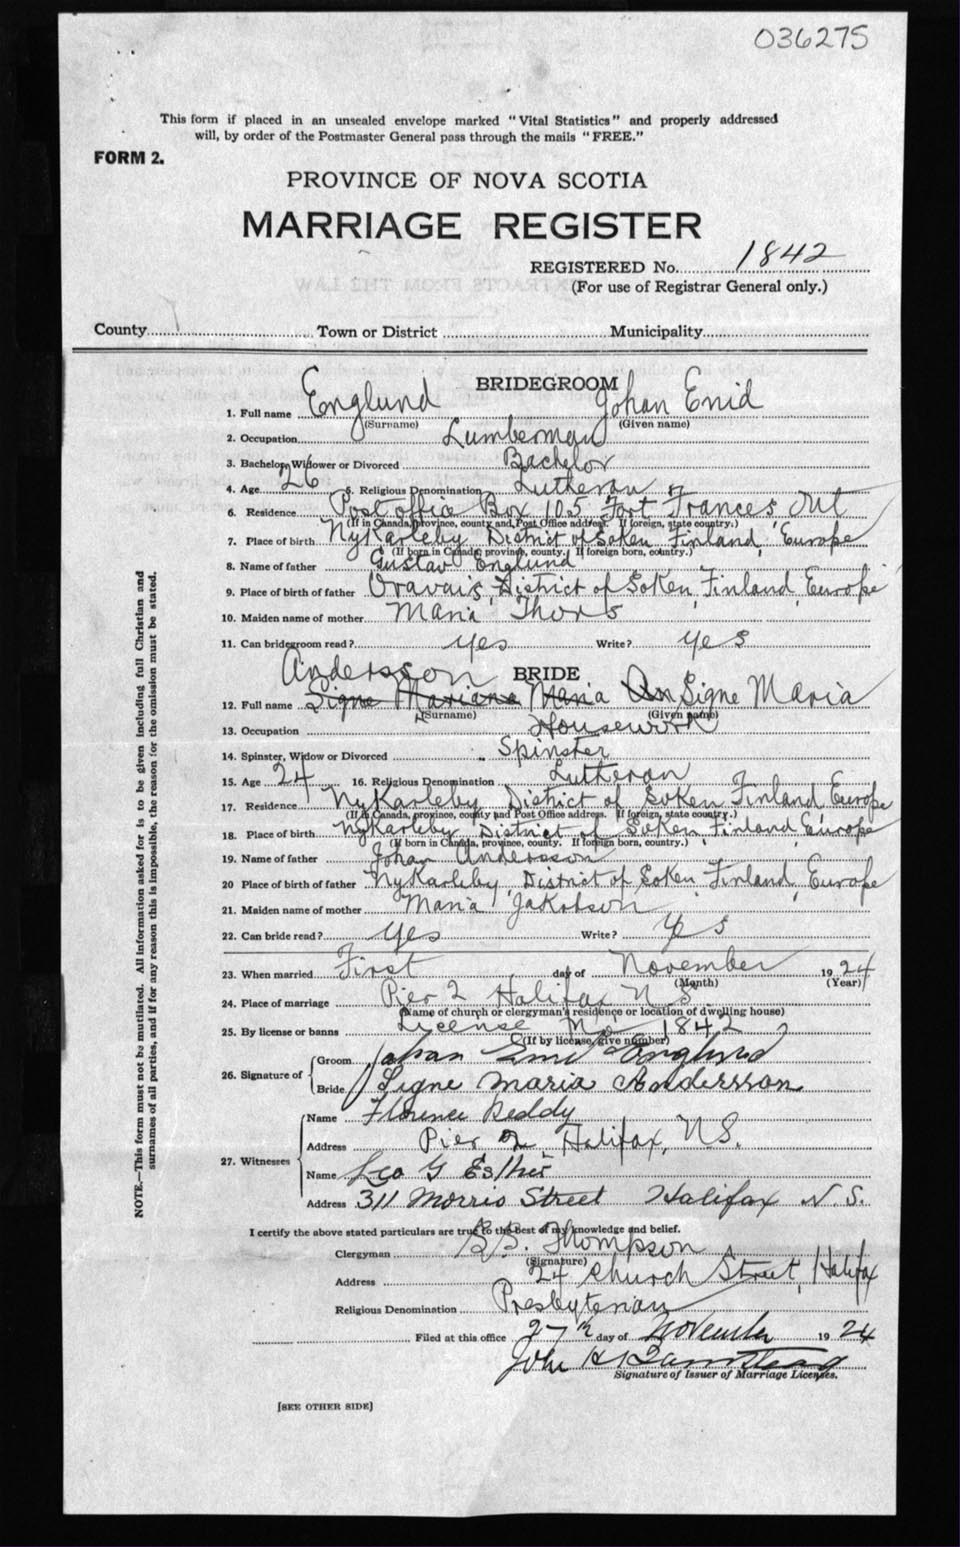 036275
This form if placed in an unsealed envelope marked "Vital Statistics" and properly addressed
will, by order of the Postmaster General pass through the mails "FREE."
FORM 2.
PROVINCE OF NOVA SCOTIA
MARRIAGE REGISTER
REGISTERED No. 1842
(For use of Registrar General only.)
County Town or District Municipality
BRIDEGROOM
1. Full name Englund Johan Enid
(Surname) (Given name)
2. Occupation Lumberman
3. Bachelor, Widower or Divorced Bachelor
4. Age 26 5. Religious Denomination Lutheran
6. Residence Post office Box 105 Fort Frances, Ont
(If in Canada, province, county and Post Office address. If foreign, state country.)
7. Place of birth NyKarleby District of Soken Finland, Europe
(If born in Canada, province, county. If foreign born, country.)
8. Name of father Gustav Englund
9. Place of birth of father Oravais, District of Soken, Finland, Europe
10. Maiden name of mother Maria Thors
11. Can bridegroom read? yes Write? yes
BRIDE
Andersson
12. Full name Signe Mariana Maria An Signe Maria
(Surname) (Given name)
13. Occupation Housework
14. Spinster, Widow or Divorced Spinster
15. Age 24 16. Religious Denomination Lutheran
17. Residence NyKarleby, District of Soken Finland, Europe
(If in Canada, province, county and Post Office address. If foreign, state country.)
18. Place of birth NyKarleby District of Soken Finland Europe
(If born in Canada, province, county. If foreign born, country.)
19. Name of father Johan Andersson
20 Place of birth of father NyKarleby, District of Soken Finland, Europe
21. Maiden name of mother Maria Jakobson
22. Can bride read? yes Write? yes
23. When married First day of November 1924
(Month) (Year)
24. Place of marriage Pier 2 Halifax N S
(Name of church or clergyman's residence or location of dwelling house)
25. By license or banns License No 1842
(If by license, give number)
26. Signature of Groom Johan Emil Englund
Bride Signe Maria Andersson
27. Witnesses Name Florence Reddy
Address Pier 2, Halifax, N.S.
Name Leo G Esther
Address 311 Morris Street Halifax N.S.
I certify the above stated particulars are true to the best of my knowledge and belief.
Clergyman Thompson
(Signature)
Address 24 Church Street, Halifax
Religious Denomination Presbyterian
Filed at this office 27th day of November 1924
John H
Signature of Issuer of Marriage Licenses.
[SEE OTHER SIDE]
NOTE.—This form must not be mutilated. All information asked for is to be given including full Christian and
surnames of all parties, and if for any reason this is impossible, the reason for the omission must be stated.